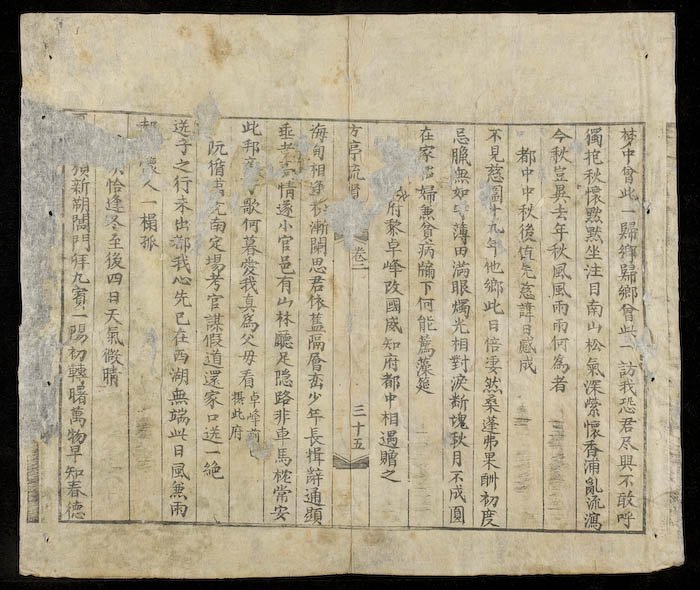 梦中曾此一歸鄉歸鄉曾此一訪我恐君尽興不敢呼
獨抱秋懷黙黙坐注目南山松氣深縈懷香浦亂流瀉
今秋豈異去年秋風風雨雨何為者
都中中秋後值先慈諱日感成
不見慈圍十九年他鄉此日倍凄然桑蓬弗果酬初度
忌臘無如薄田滿眼燭光相對淚断塊秋月不成圓
在家婦兼貧病牖下何能薦藻筵
府黎卓峰改國威知府都中相遇贈之
方亭流
卷二
三十五
海甸相逢漸闊思君依舊隔層巒少年長揖辭通顯
垂老情遂小官邑有山林聽足隐路非車馬枕常安
此邦歌何暮愛我真為父毋看卓峰前
撰此府
阮循南定場考官謀假道還家口送一絶
送子之行未出都我心先已在西湖無端此日風兼雨
懷人一榻孤
恰逢冬至後四日天氣微晴
須新朔閙門拜九賓一陽初轉曙萬物早知春德